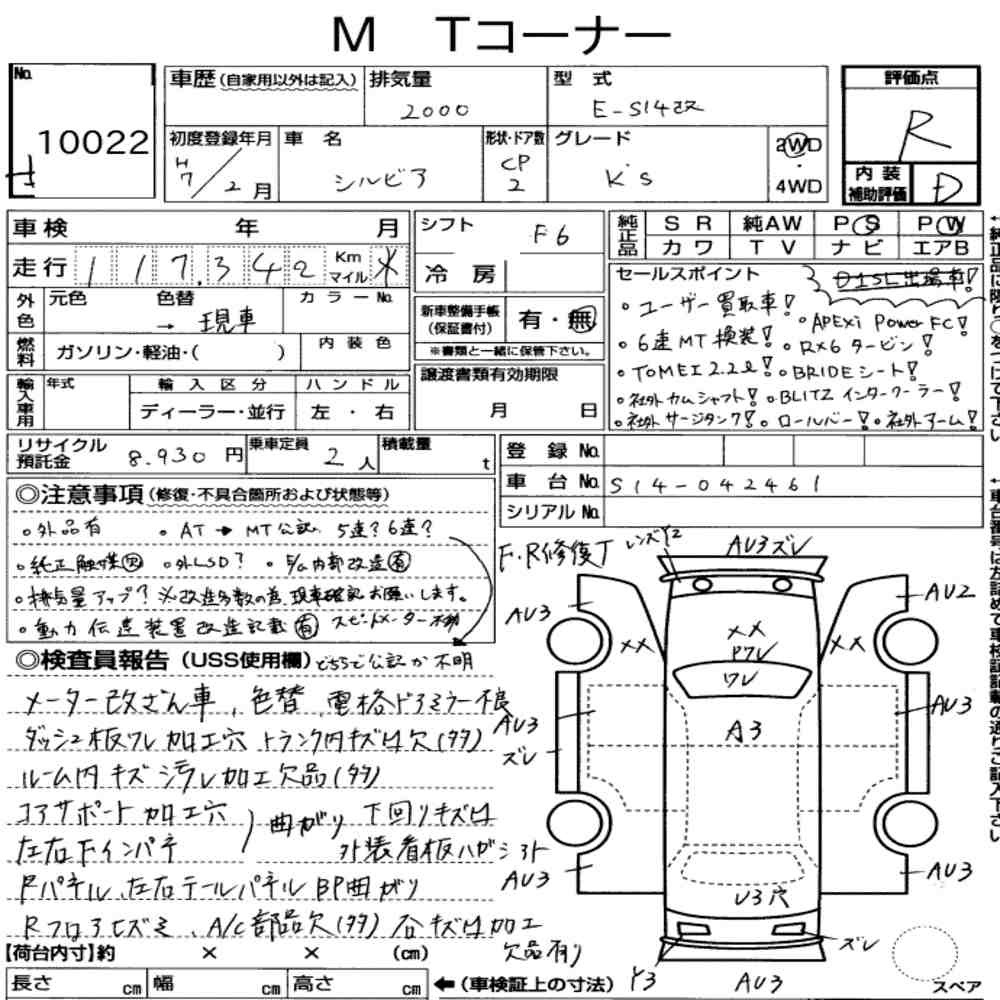 M Tコーナー
No. 10022
車歴(自家用以外は記入) 排気量 2000 型式 E-S14改
評価点 R
初度登録年月 H7/2月 車名 シルビア 形状・ドア数 CP 2 グレード K's 2WD・4WD
内装補助評価 D
車検 年 月
走行 117,342 Km マイル *
シフト F6
冷房
純正品 SR 純AW PS PW
カワ TV ナビ エアB
外色 元色 色替 → 現車 カラーNo.
燃料 ガソリン・軽油・( ) 内装色
新車整備手帳(保証書付) 有・無
※書類と一緒に保管下さい。
輸入車用 年式 輸入区分 ハンドル
ディーラー・並行 左・右
譲渡書類有効期限
月 日
セールスポイント D1SL出場車!
・ユーザー買取車! ・APEXi Power FC!
・6速MT換装! ・RX6タービン!
・TOMEI 2.2ℓ! ・BRIDEシート!
・社外カムシャフト! ・BLITZインタークーラー!
・社外サージタンク! ・ロールバー! ・社外アーム!
リサイクル預託金 8,930円 乗車定員 2人 積載量 t
登録No.
車台No. S14-042461
シリアルNo.
◎注意事項(修復・不具合箇所および状態等)
・外品有 ・AT→MT公認 5速?6速?
・純正触媒欠 ・外LSD? ・E/G内部改造有
・排気量アップ? ※改造多数の為、現車確認お願いします。
・動力伝達装置改造記載有 スピードメーター不動
◎検査員報告(USS使用欄) どちらで公認か不明
メーター改ざん車、色替、電格ドアミラー不良
ダッシュ板ワレ加工穴 トランク内キズサビ欠(多々)
ルーム内キズ汚レ加工欠品(多々)
コアサポート加工穴
左右Fインパネ ) 曲がり 下回りキズサビ
外装看板ハガシあト
Rパネル、左右テールパネルBP曲がり
Rフロアヒズミ、A/C部品欠(多々) 各キズサビ加工
欠品有り
【荷台内寸】約 × × (cm)
長さ cm 幅 cm 高さ cm ←(車検証上の寸法)
F・R修復T レンズY2
AU3ズレ
AU3
AU2
××
××
Pワレ
ワレ
××
AU3
ズレ
A3
AU3
AU3
U3穴
AU3
ズレ
Y3
AU3
スペア
↑純正品に限り○をつけて下さい。
↑車台番号は左詰めで車検証記載の通りご記入下さい。